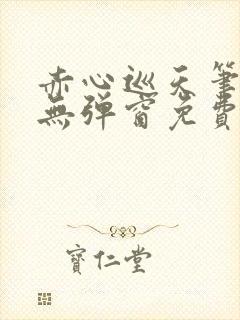 赤心巡天筆
無彈窗免費
寶仁堂